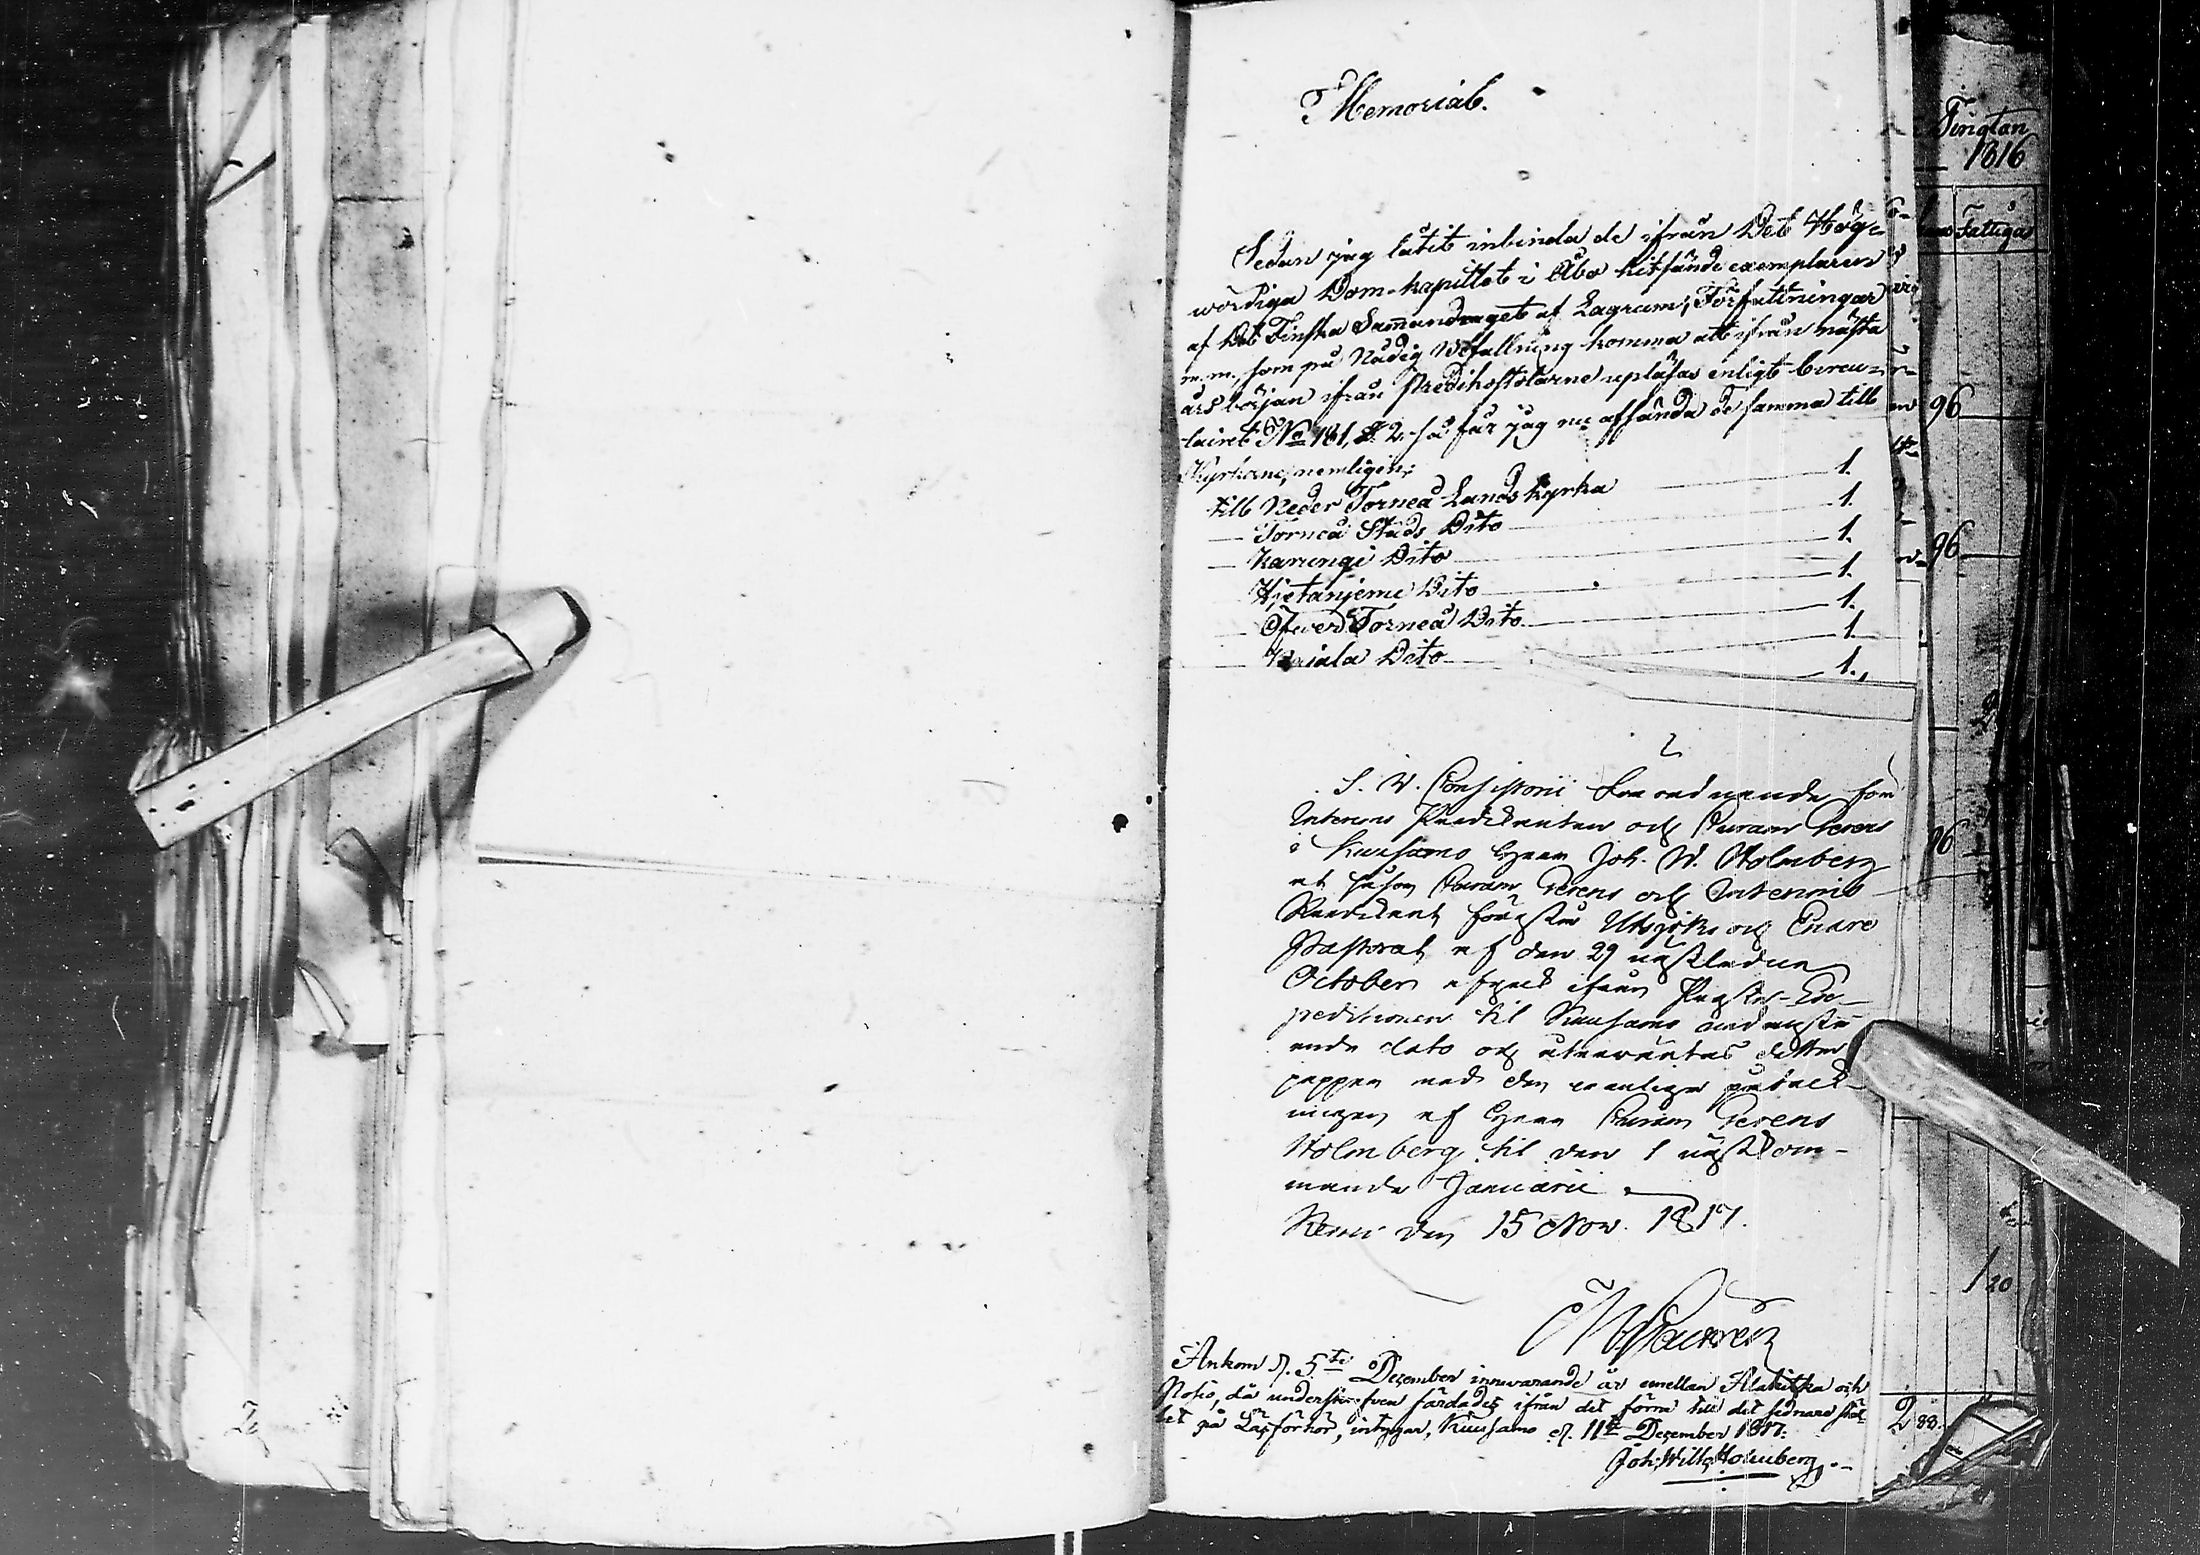 Memorial.
Sedan jag låtit inbinda de ifrån Det Högs
wördiga Dom-kapitlet i Åbo hitsände exemplaren
af det Finska Sammandraget af Lagrum, Författningar
m.m., som på Nådig Befallning komma att ifrån nästa
års början ifrån Predikostolarne upläsas enligt Circu-
lairet No 181, § 2. så får jag nu afsända de samma till
Kyrkorne, nemligen:
till Neder Torneå Landskyrka 1.
— Torneå Stads Dito 1.
— Karungi Dito 1.
Hjetanjemi Dito 1.
— Öfver Torneå Dito 1.
— Dito 1.
1.
2
S. V. Consistorii förordnande för
Interims Predikanten och Curam Gerens
i Kuusamo Herr Joh. W. Holmberg
at såsom Curam Gerens och Interims
Predikant förestå Utsjoki och Enare
Pastorat af den 29 nästledne
October afgick ifrån Prosts-Ex-
peditionen til Kuusamo
dato och återväntas detta
papper med den vanliga påteck-
ningen af Herr Curam Gerens
Holmberg til den 1 nästkom-
mande Januarii
Kemi den 15 Nov. 1817.
Ankom d. 5te Dezember innevarande år emellan Alakitka och
Nosio, då underskrefven färdades ifrån det förra till det sednare stäl-
let på Läsförhör, intygar, Kuusamo d. 11te Dezember 1817.
Joh. Wilh. Holmberg.
1816
Fattiga
96
96
96
1 20
2 88.